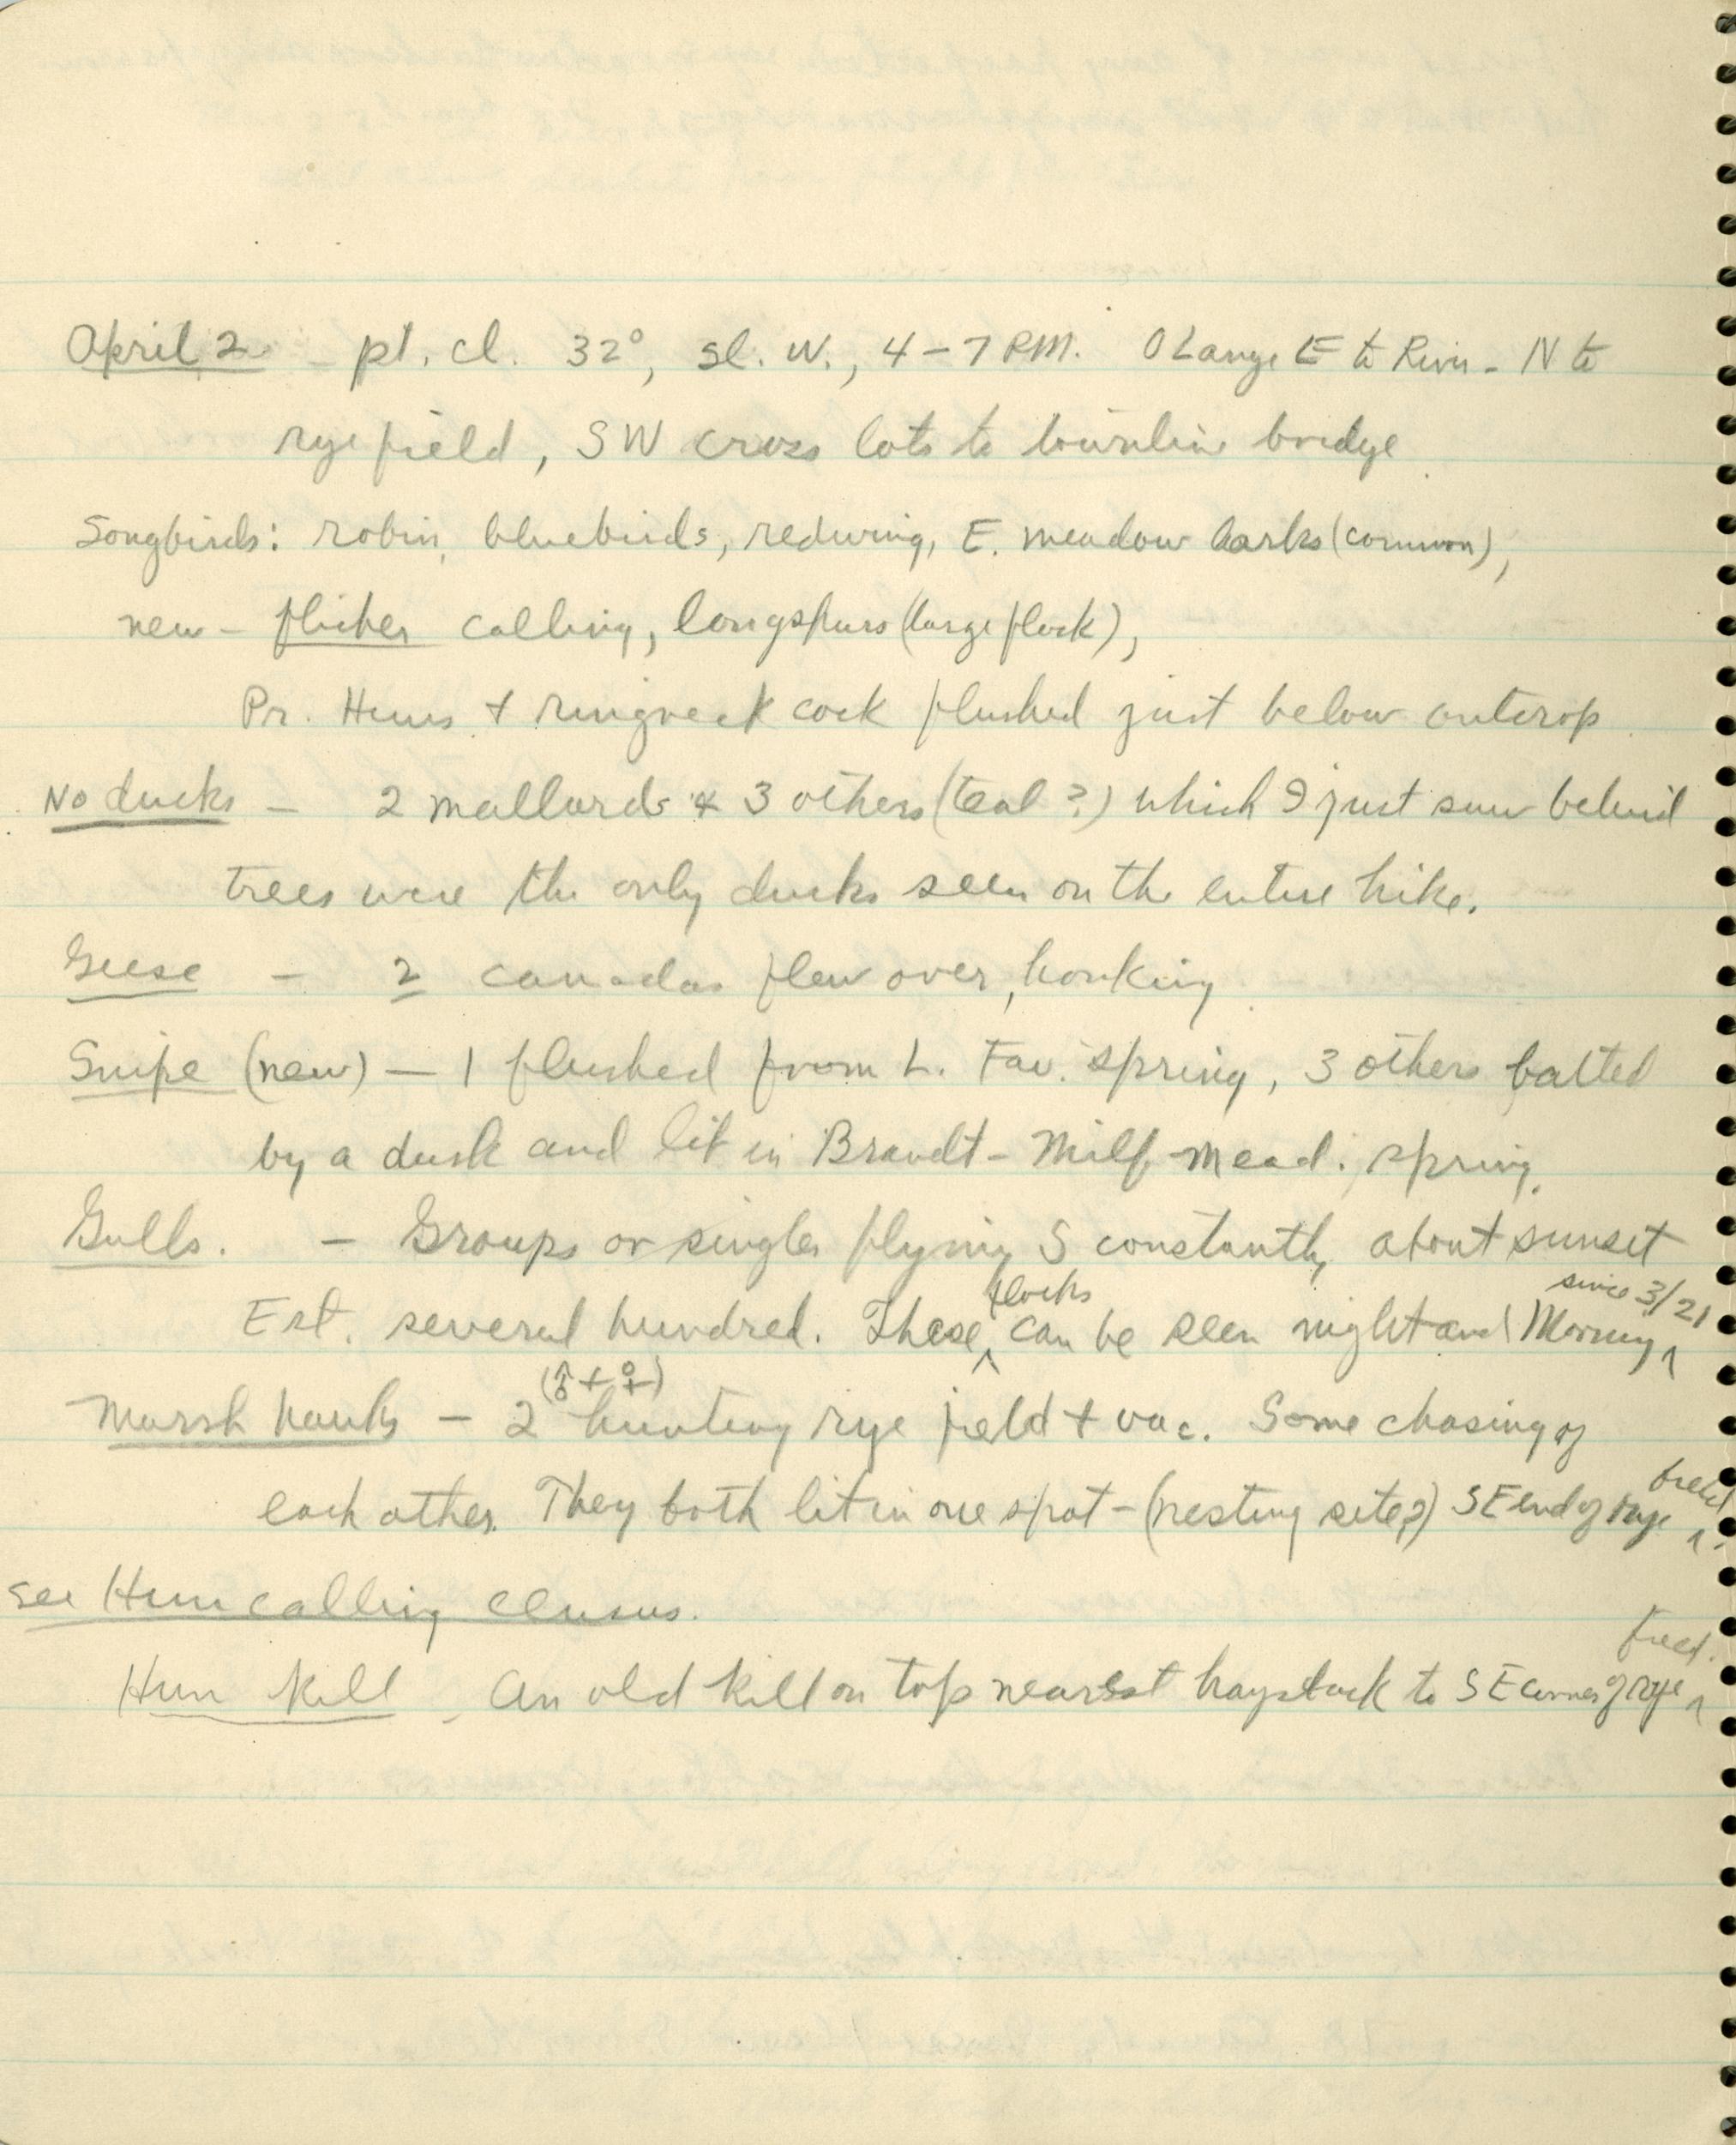 April 2 - pt. cl. 32°, sl. W., 4-7 P.M. O Lange E to River - N to
rye field, SW cross lots to townline bridge
Songbirds: robin, bluebirds, redwing, E. meadow larks (common),
new - flicker calling, longspurs (large flock),
Pr. Huns + ringneck cock flushed just below outcrop
No ducks - 2 mallards & 3 others (teal?) which I just saw behind
trees were the only ducks seen on the entire hike.
Geese - 2 canadas flew over, honking
Snipe (new) - 1 flushed from L. Fav. spring, 3 others batted
by a dusk and lit in Brandt - Milf. Mead. spring.
Gulls. - Groups or singles flying S constantly about sunset
Est. several hundred. These flocks can be seen night and Morning since 3/21
Marsh hawks - 2 (♂ + ♀) hunting rye field + vac. Some chasing of
each other. They both lit in one spot - (nesting site?) SE end of rye field.
See Hun calling census.
Hun kill - An old kill on top nearest haystack to SE corner of rye field.